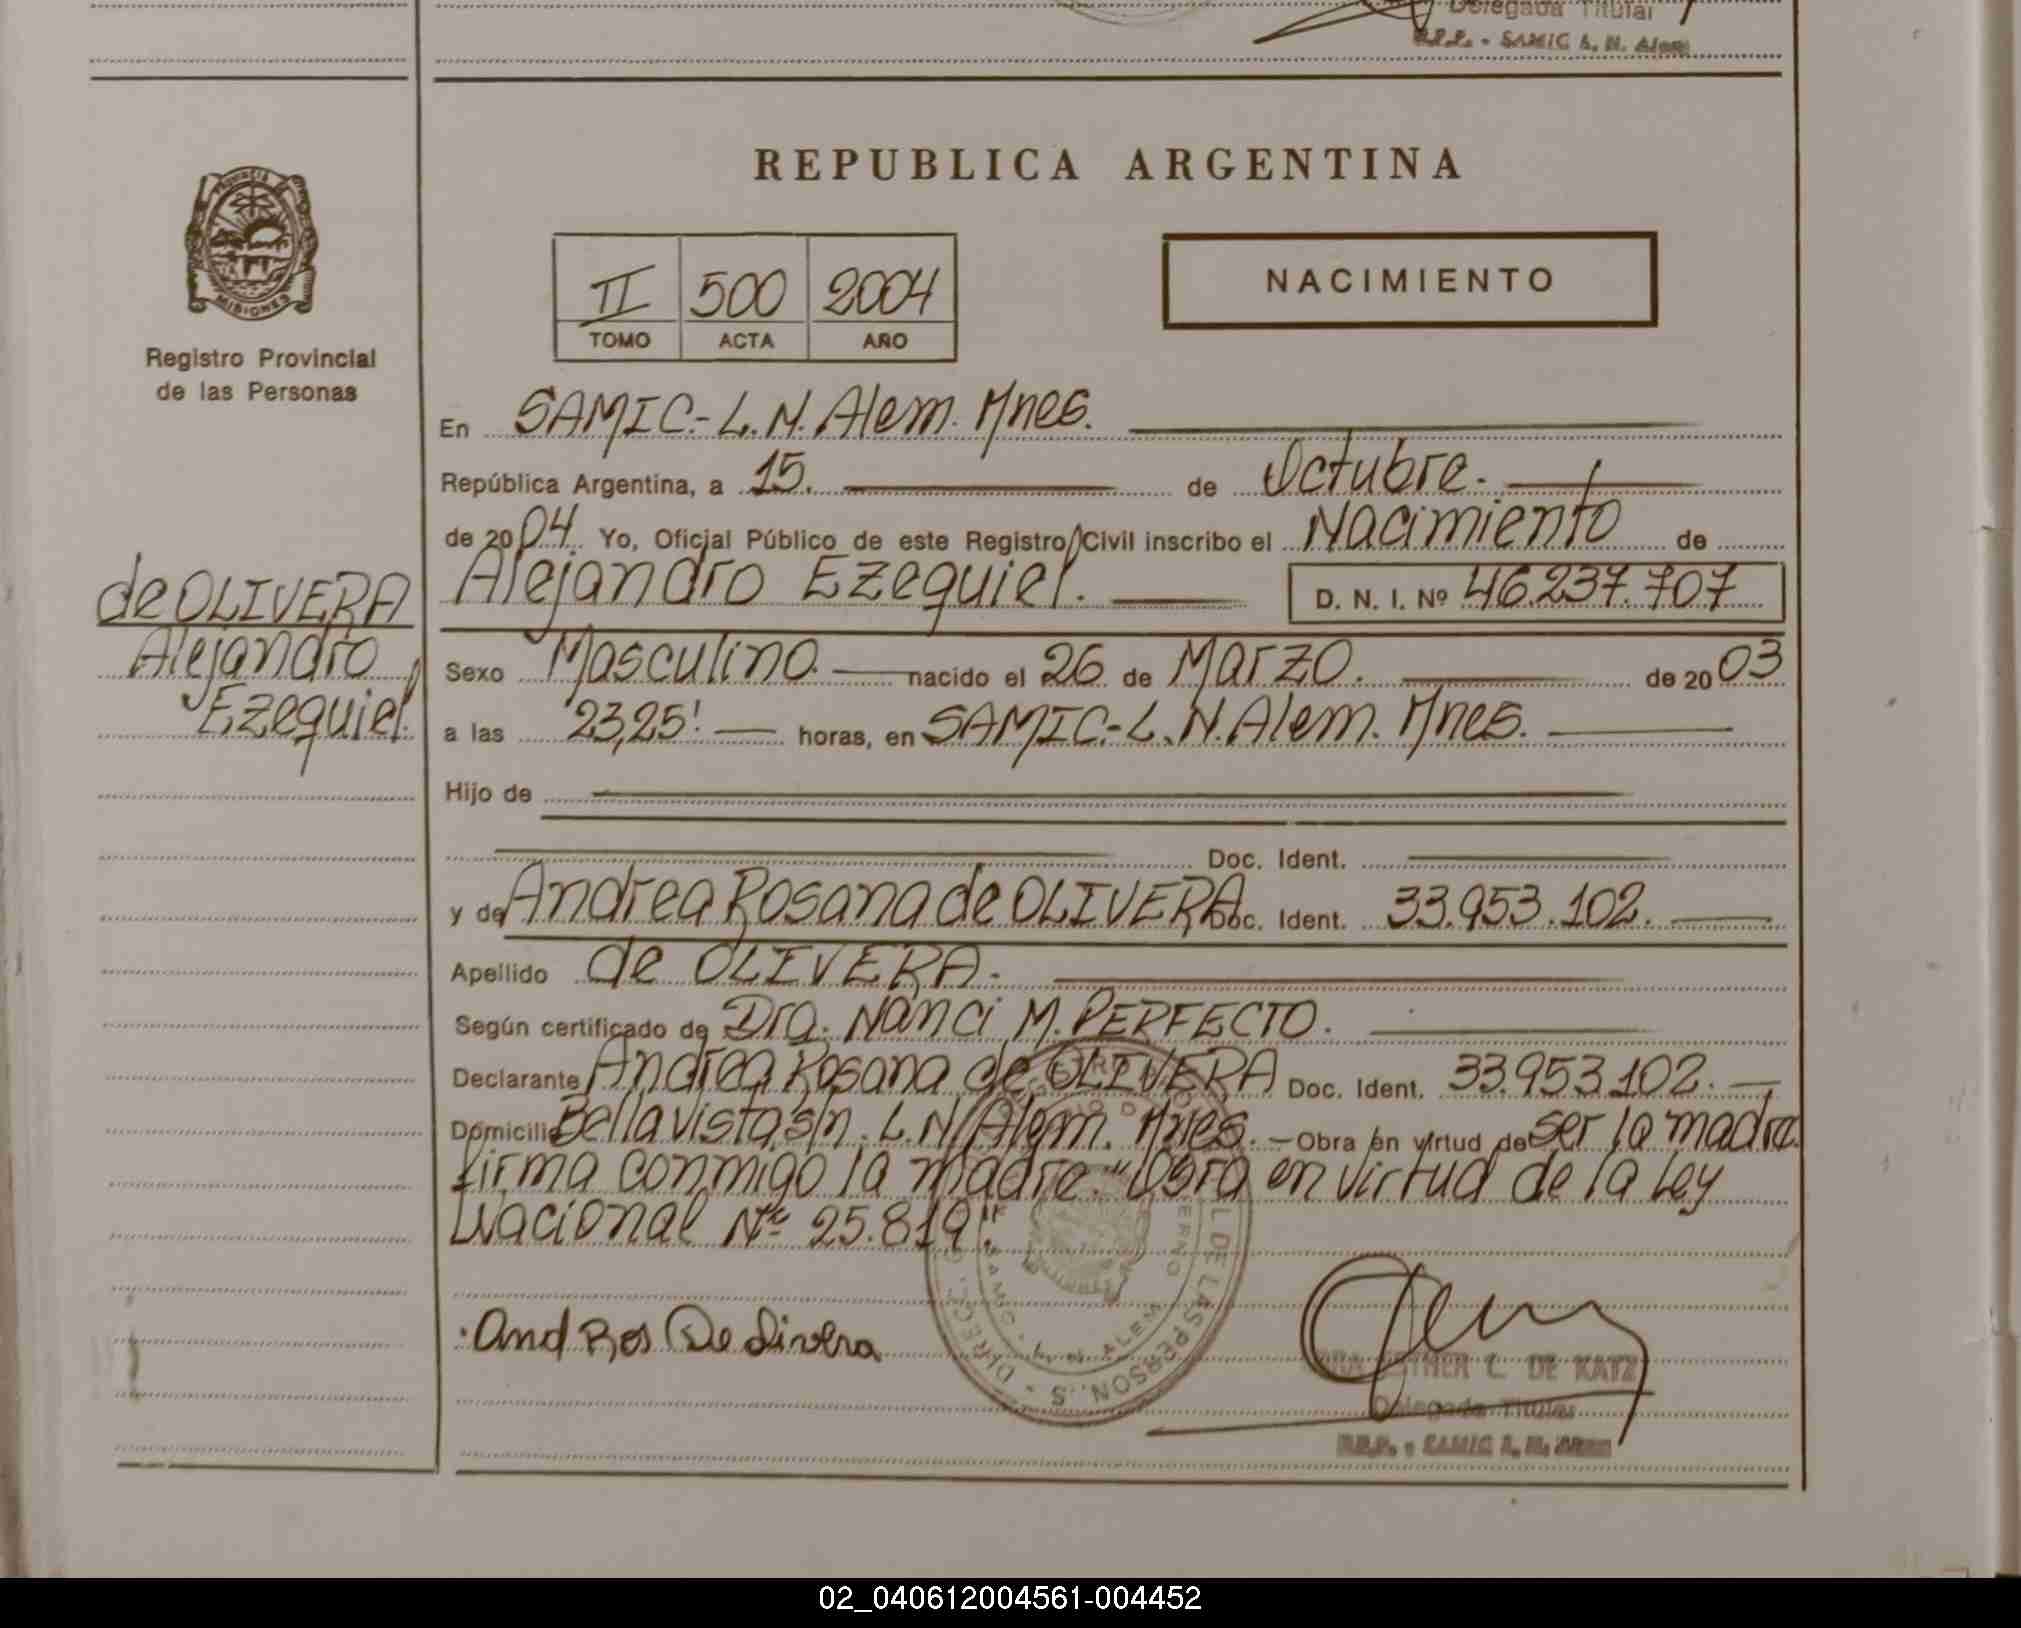 Delegada Titular
R.P.P. - SAMIC L. N. Alem
PROVINCIA DE
MISIONES
Registro Provincial
de las Personas
REPUBLICA ARGENTINA
II 500 2004
TOMO ACTA AÑO
NACIMIENTO
En SAMIC.-L.N.Alem. Mnes.
República Argentina, a 15. de Octubre.
de 2004. Yo, Oficial Público de este Registro Civil inscribo el Nacimiento de
Alejandro Ezequiel. D. N. I. Nº 46.237.707
de OLIVERA
Alejandro
Ezequiel.
Sexo Masculino. nacido el 26 de Marzo. de 2003
a las 23,25' horas, en SAMIC.-L.N.Alem. Mnes.
Hijo de
Doc. Ident.
y de Andrea Rosana de OLIVERA Doc. Ident. 33.953.102.
Apellido de OLIVERA.
Según certificado de Dra. Nanci M. PERFECTO.
Declarante Andrea Rosana de OLIVERA Doc. Ident. 33.953.102.
Domicilio Bella vista s/n. L.N. Alem. Mnes. Obra en virtud de ser la madre.
firma conmigo la madre. "Obra en virtud de la Ley
Nacional Nº 25.819".
And Ros De Livera
DRA ESTHER C. DE KATZ
Delegada Titular
R.P.P. - SAMIC L. N. Alem
L. N. ALEM
02_040612004561-004452